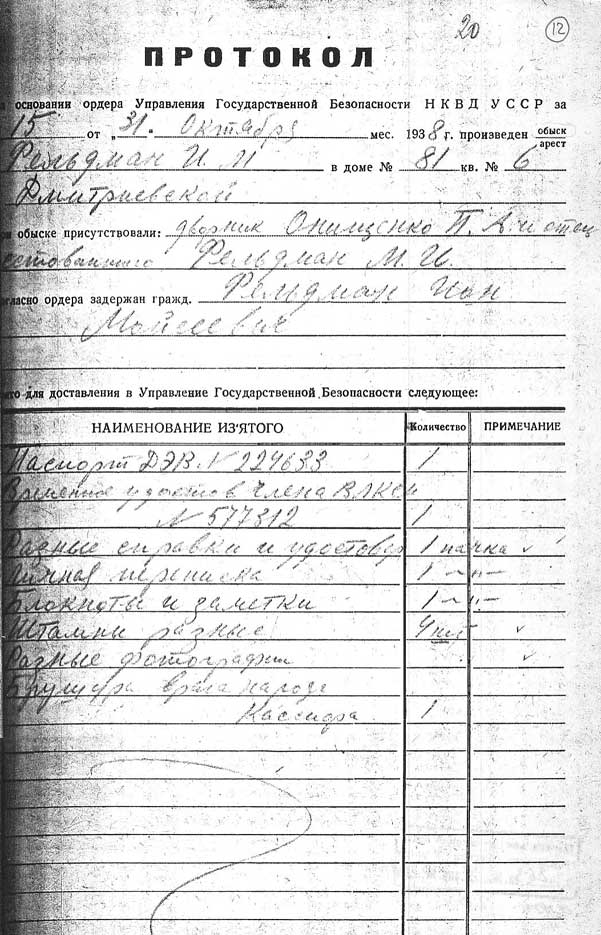 20
12
ПРОТОКОЛ
основании ордера Управления Государственной Безопасности НКВД УССР за
15 от „31. Октября мес. 1938 г. произведен обыск
арест
Фельдман И. М в доме № 81 кв. № 6
Дмитриевской
обыске присутствовали: дворник Онищенко П. А и отец
Фельдман М. И.
ордера задержан гражд. Фельдман Ион
Мойсеевич
для доставления в Управление Государственной Безопасности следующее:
НАИМЕНОВАНИЕ ИЗ'ЯТОГО Количество ПРИМЕЧАНИЕ
Паспорт ДЭВ. № 224633 1
Временное удостов члена ВЛКСМ
№ 577812 1
Разные справки и удостовер 1 пачка ✓
Личная переписка 1 –"–
Блокноты и заметки 1 –"–
Штампы разные 4 ✓
Разные фотографии ✓
Брушура врага народа
Кассидра 1